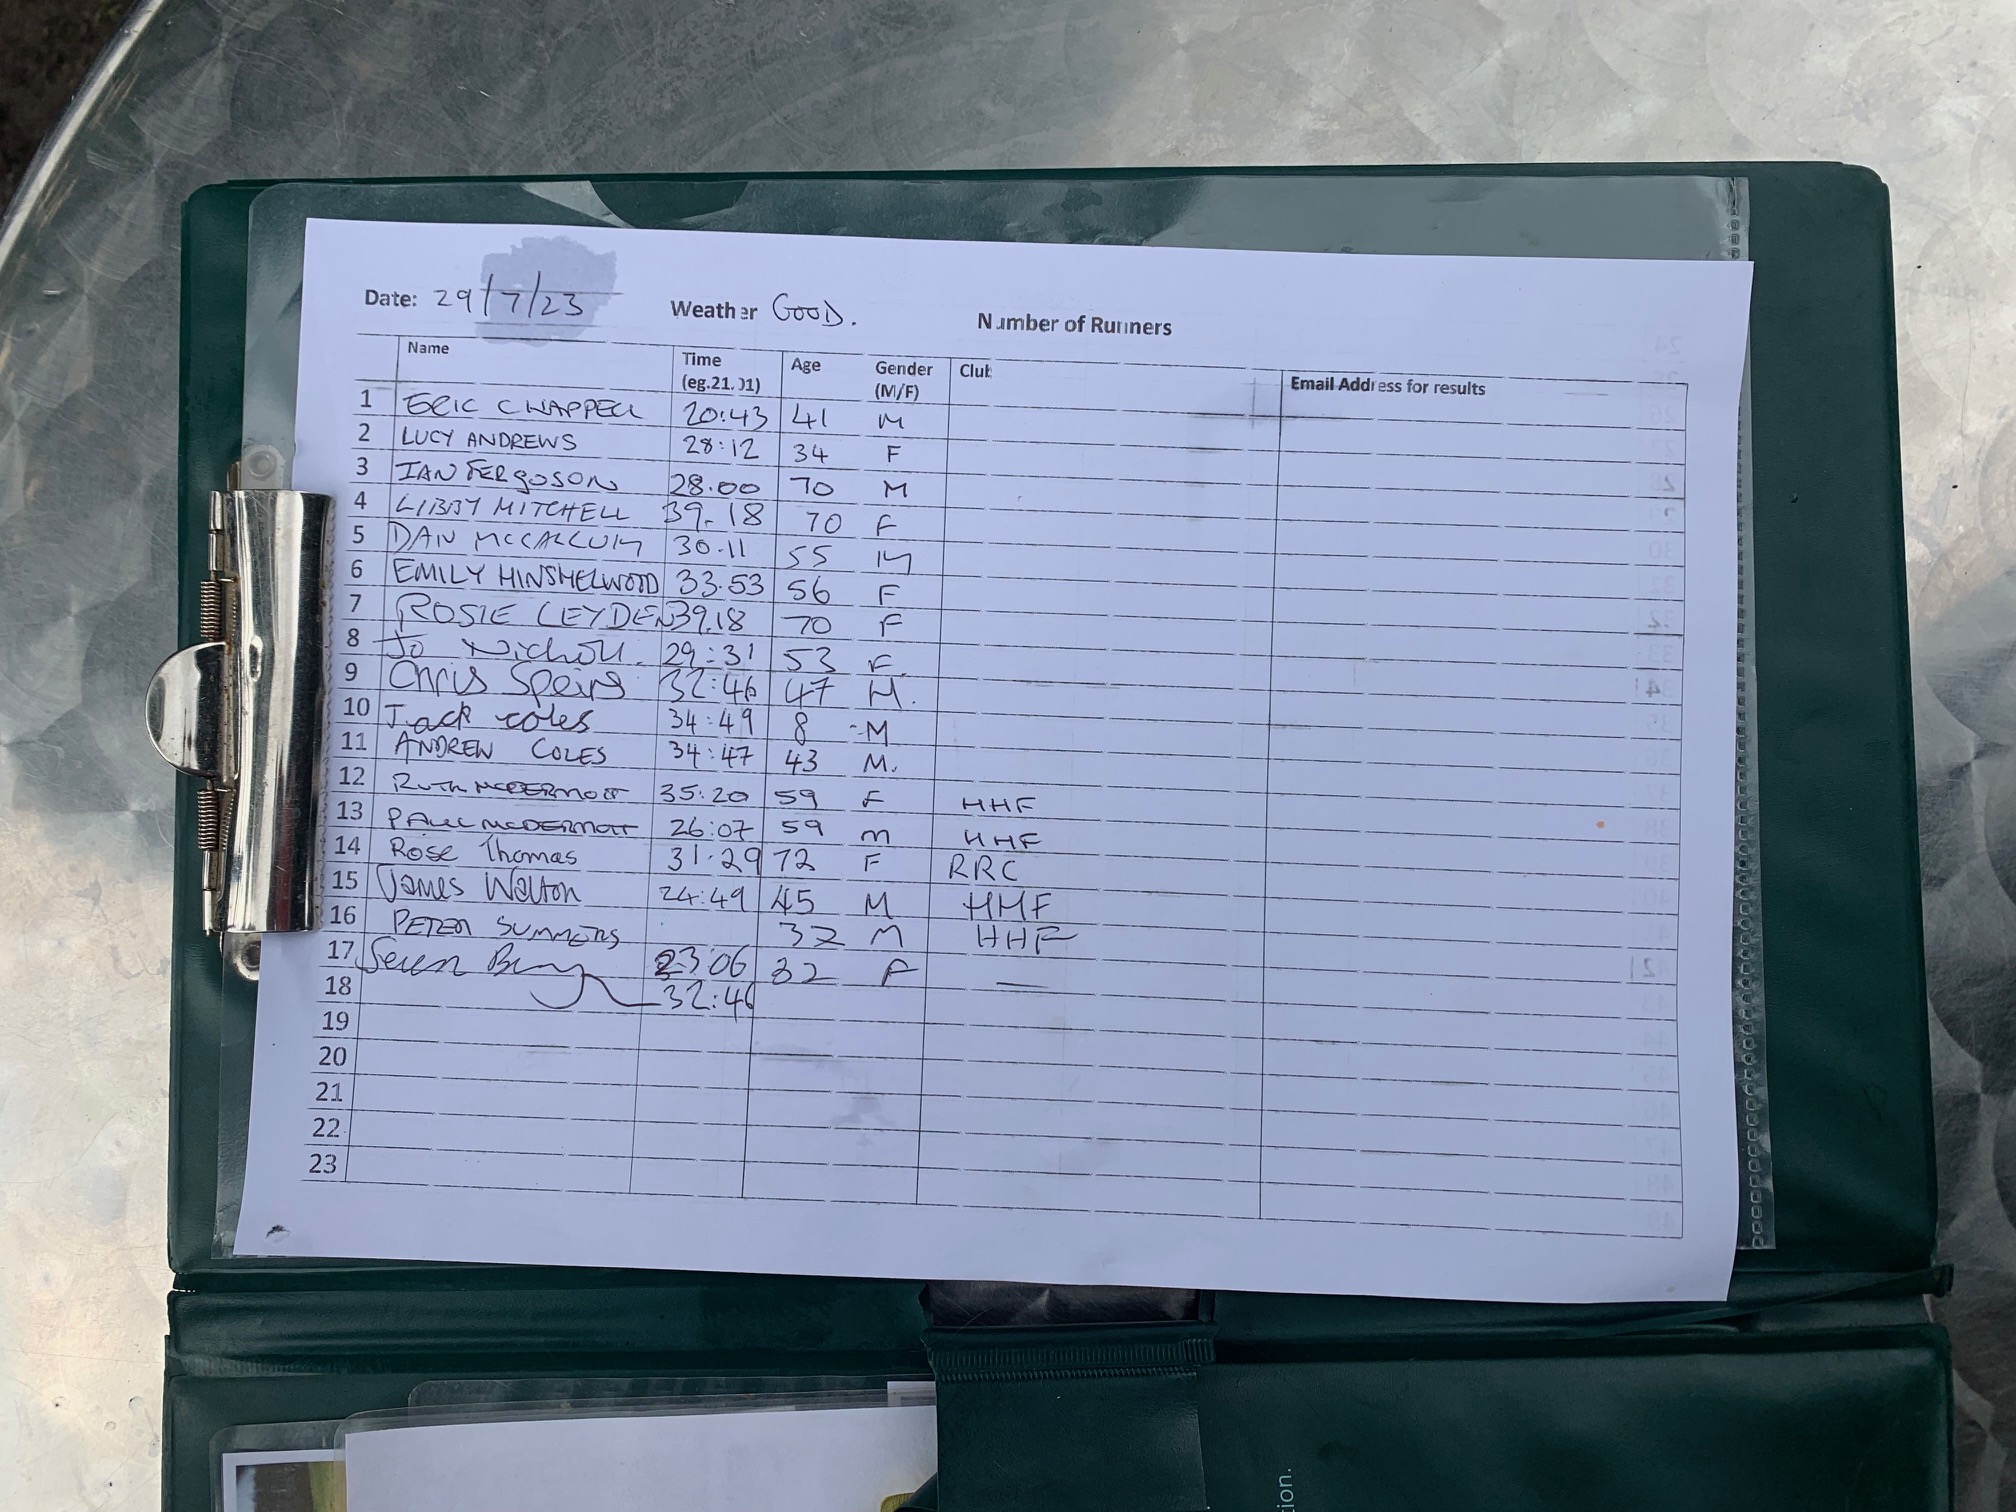 Date: 29/7/23 Weather GOOD. Number of Runners
Name Time (eg.21.01) Age Gender (M/F) Club Email Address for results
1 ERIC CHAPPELL 20:43 41 M
2 LUCY ANDREWS 28:12 34 F
3 IAN FERGOSON 28.00 70 M
4 LIBBY MITCHELL 39.18 70 F
5 DAN MCCALLUM 30.11 55 M
6 EMILY HINSHELWOOD 33.53 56 F
7 ROSIE LEYDEN 39.18 70 F
8 Jo Nicholl. 29:31 53 F
9 Chris Speirs 32:46 47 M.
10 Jack coles 34:49 8 M
11 ANDREW COLES 34:47 43 M.
12 RUTH MCDERMOTT 35:20 59 F HHF
13 PAUL MCDERMOTT 26:07 59 M HHF
14 Rose Thomas 31:29 72 F RRC
15 James Walton 24:49 45 M HHF
16 PETER SUMMERS 37 M HHF
17 23:06 32 F —
18 32:46
19
20
21
22
23
ion.